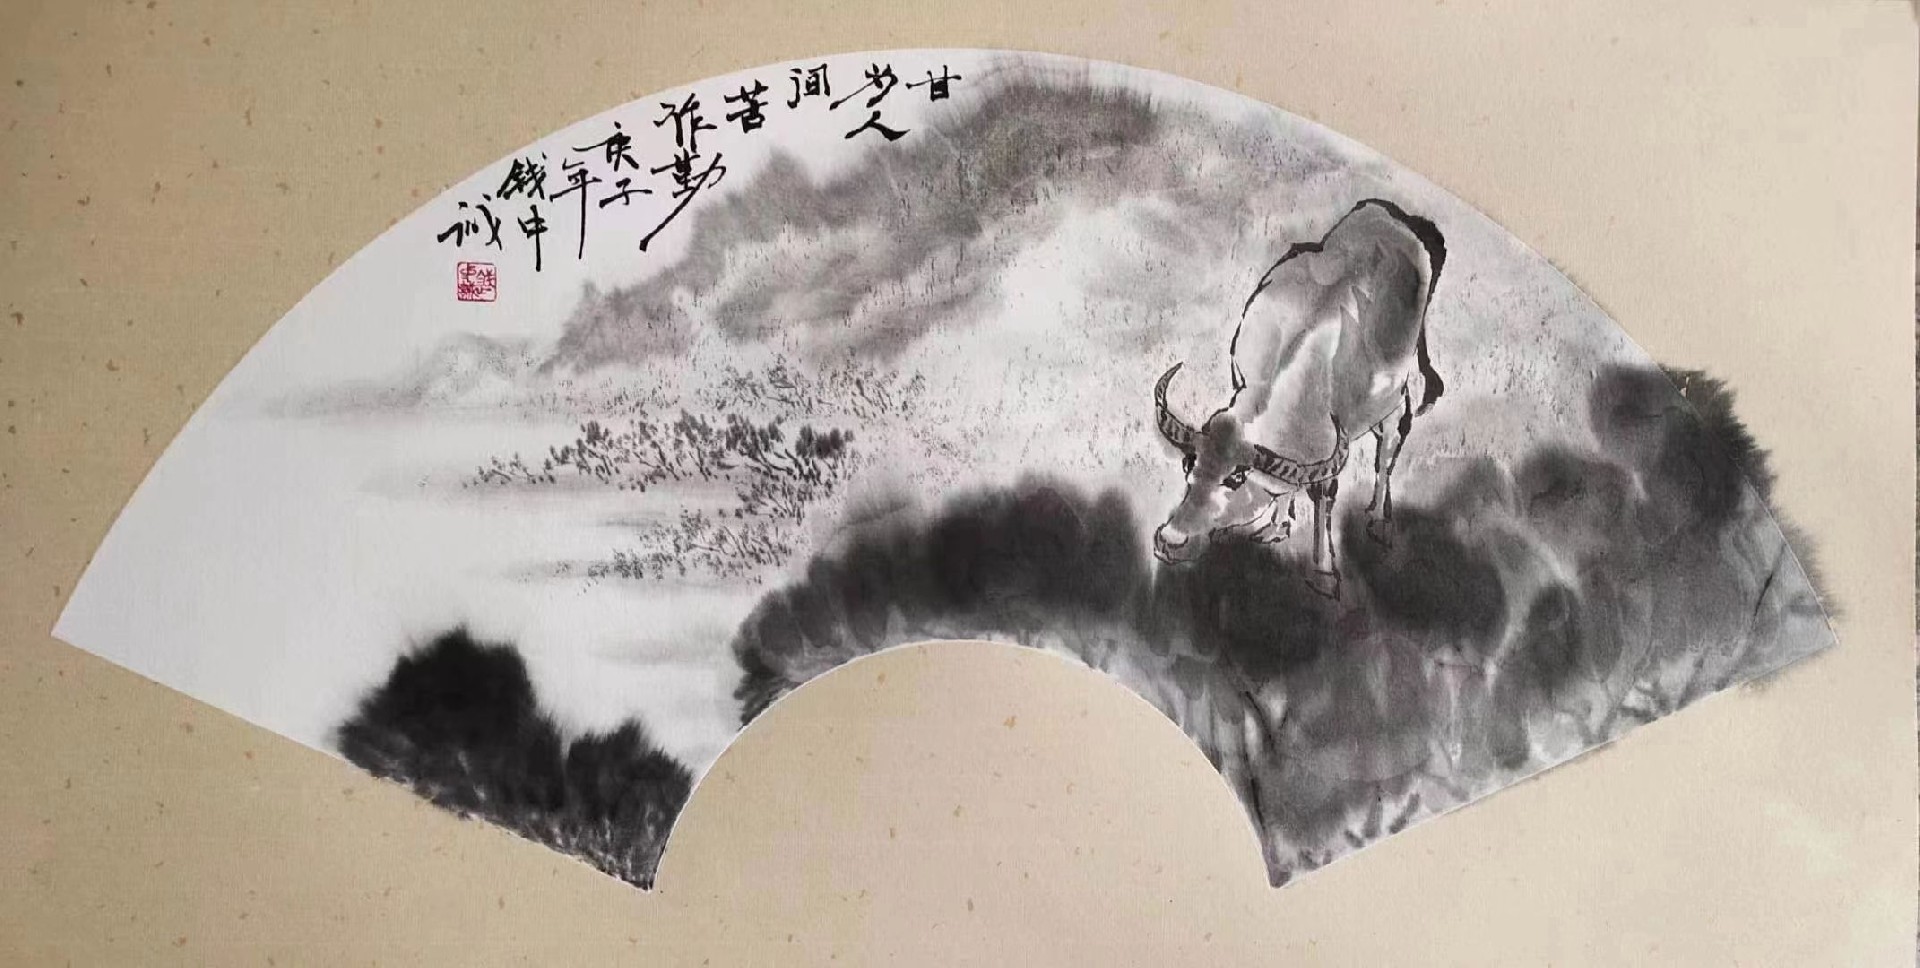 甘
为人
间
苦
作勤
庚子
年
钱申
诚